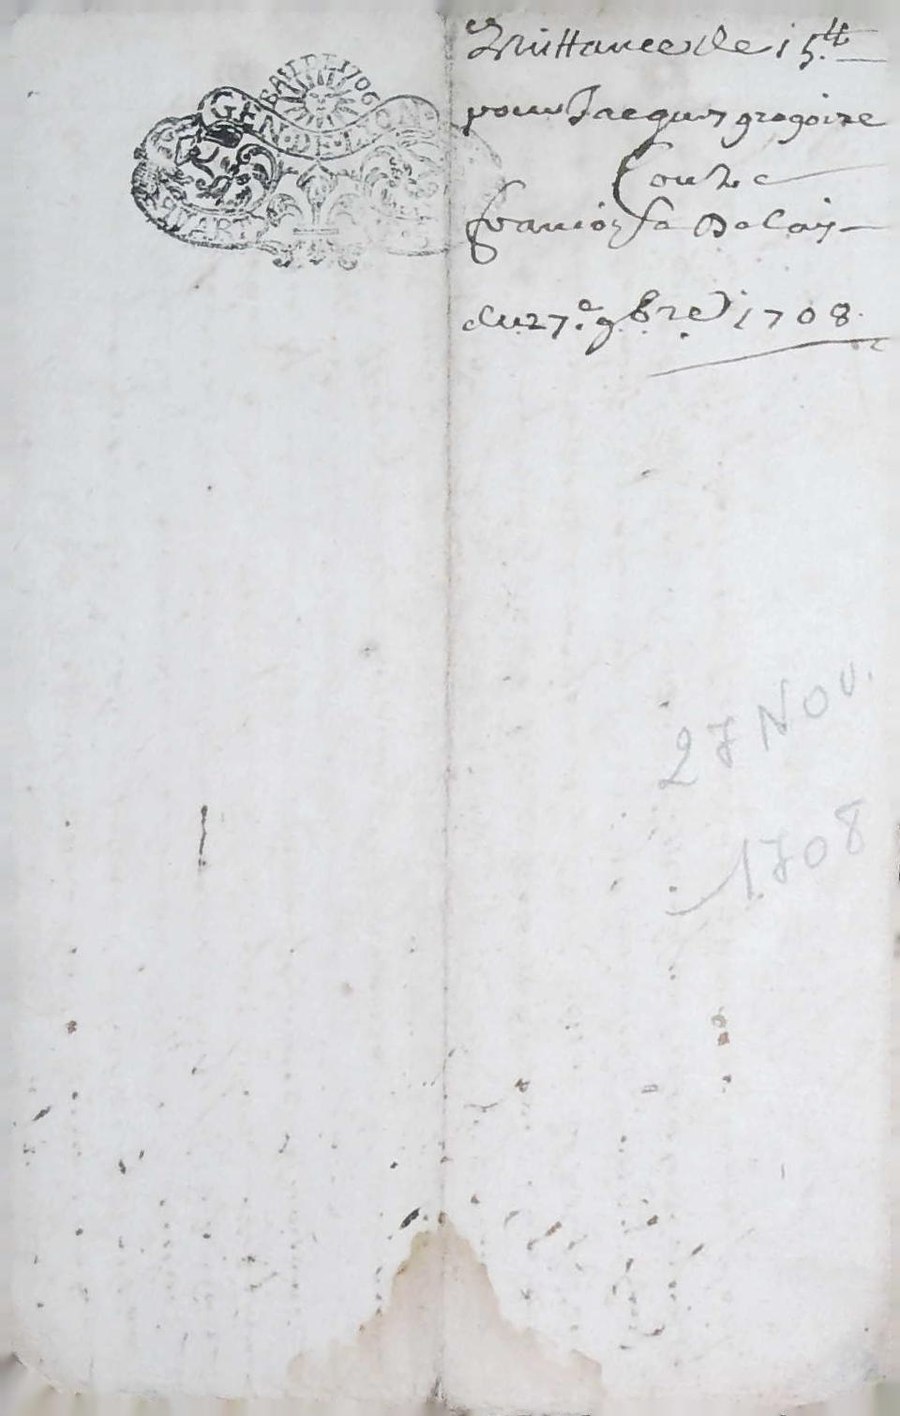 BAIL DE 1706
GEN · DE · LYON
Quittance de 15.tt
pour Jacques gregoire
Contre
Francoise Delay
du 27.e 9.bre 1708.
27 Nov.
1708